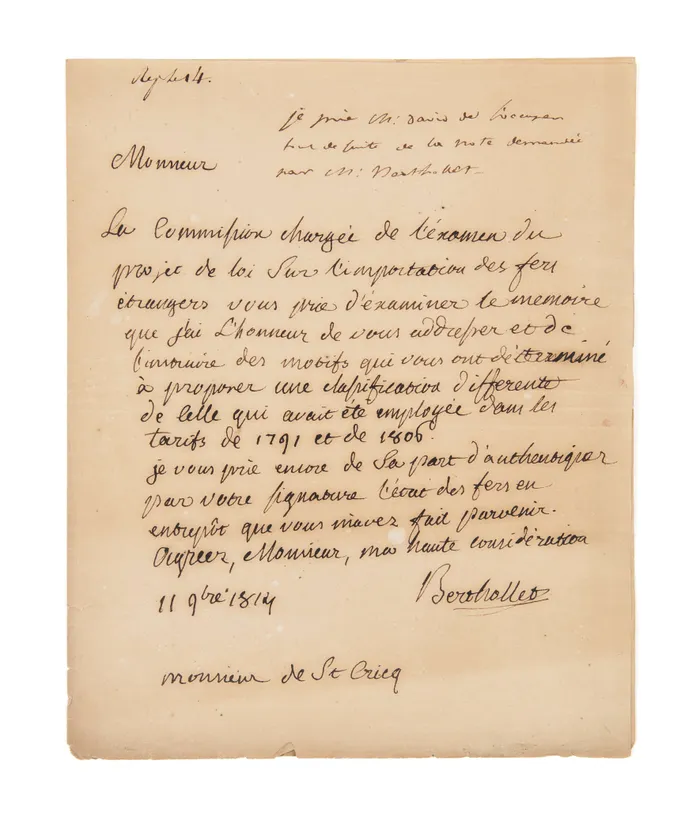 Rep. le 14.
je prie Mr. David de s'occuper
tout de suite de la note demandée
par Mr. Berthollet
Monsieur
La Commission chargée de l'éxamen du
projet de loi sur l'importation des fers
étrangers vous prie d'éxaminer le memoire
que j'ai L'honneur de vous addresser et de
l'instruire des motifs qui vous ont déterminé
à proposer une classification differente
de celle qui avait été employée dans les
tarifs de 1791 et de 1806.
je vous prie encore de sa part d'authentiquer
par votre signature l'état des fers en
entrepôt que vous m'avez fait parvenir.
Agreez, Monsieur, ma haute considération
11 9bre 1814
Berthollet
monsieur de St Cricq